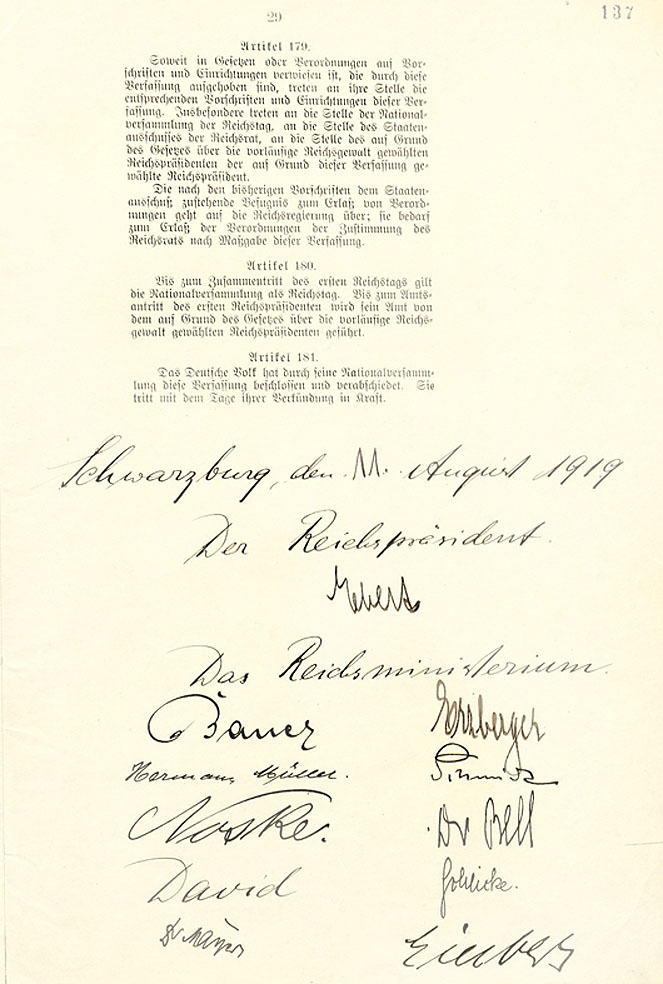 29
137
Artikel 179.
Soweit in Gesetzen oder Verordnungen auf Vor-
schriften und Einrichtungen verwiesen ist, die durch diese
Verfassung aufgehoben sind, treten an ihre Stelle die
entsprechenden Vorschriften und Einrichtungen dieser Ver-
fassung. Insbesondere treten an die Stelle der National-
versammlung der Reichstag, an die Stelle des Staaten-
ausschusses der Reichsrat, an die Stelle des auf Grund
des Gesetzes über die vorläufige Reichsgewalt gewählten
Reichspräsidenten der auf Grund dieser Verfassung ge-
wählte Reichspräsident.
Die nach den bisherigen Vorschriften dem Staaten-
ausschuß zustehende Befugnis zum Erlaß von Verord-
nungen geht auf die Reichsregierung über; sie bedarf
zum Erlaß der Verordnungen der Zustimmung des
Reichsrats nach Maßgabe dieser Verfassung.
Artikel 180.
Bis zum Zusammentritt des ersten Reichstags gilt
die Nationalversammlung als Reichstag. Bis zum Amts-
antritt des ersten Reichspräsidenten wird sein Amt von
dem auf Grund des Gesetzes über die vorläufige Reichs-
gewalt gewählten Reichspräsidenten geführt.
Artikel 181.
Das Deutsche Volk hat durch seine Nationalversamm-
lung diese Verfassung beschlossen und verabschiedet. Sie
tritt mit dem Tage ihrer Verkündung in Kraft.
Schwarzburg, den 11. August 1919
Der Reichspräsident.
Ebert
Das Reichsministerium.
Bauer
Erzberger
Hermann Müller.
Schmidt
Noske.
Dr Bell
David
Schlicke.
Dr Mayer